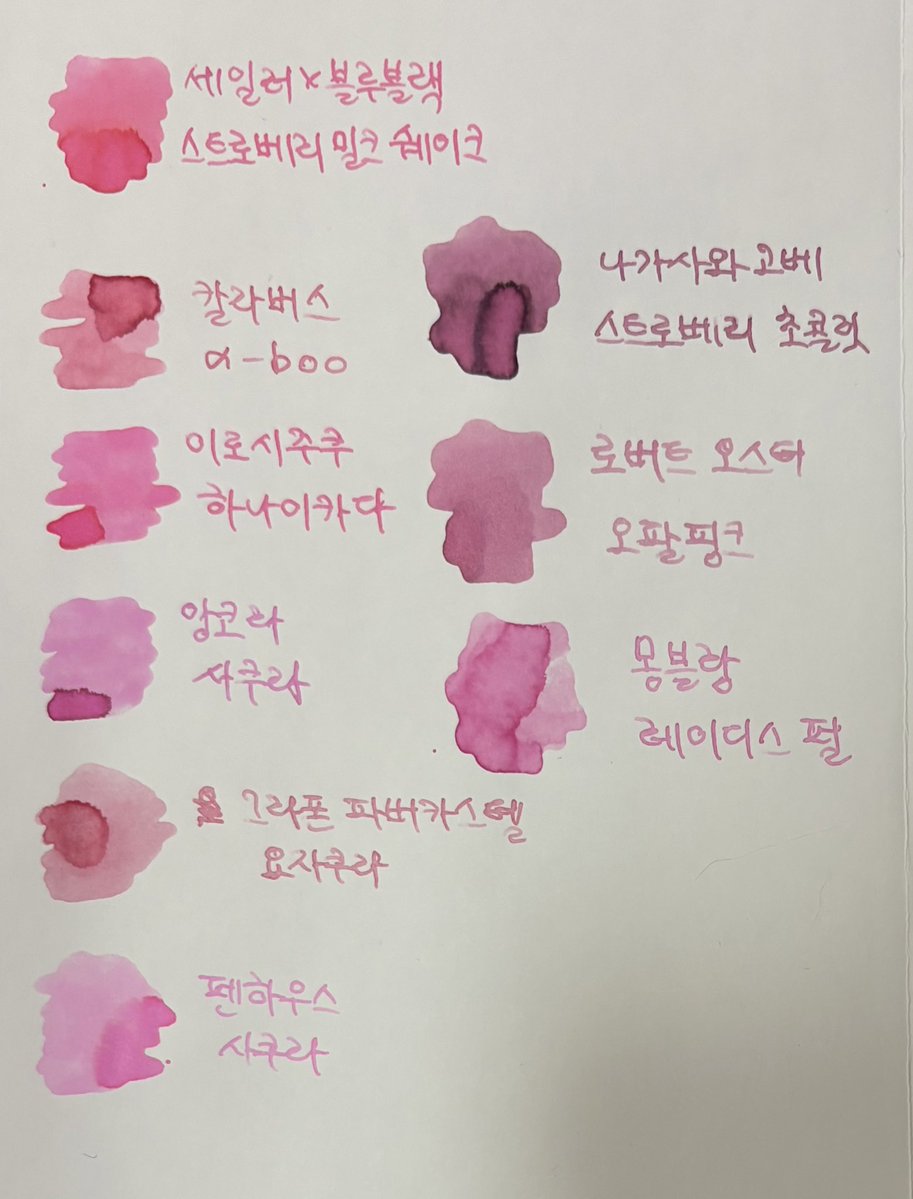 세일러×블루블랙
스트로베리 밀크 쉐이크
칼라버스
α-boo
이로시주쿠
하나이카다
앙코라
사쿠라
그라폰 파버카스텔
요자쿠라
펜하우스
사쿠라
나가사와 고베
스트로베리 초콜릿
로버트 오스터
오팔핑크
몽블랑
레이디스 펄